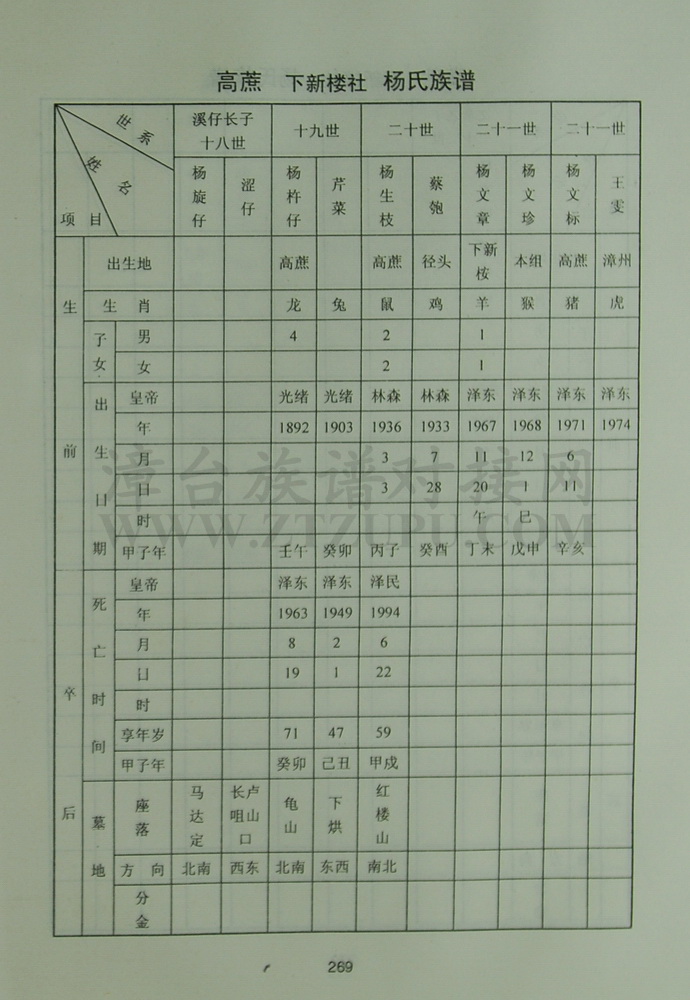 高蔗 下新楼社 杨氏族谱
世系 姓名 项目
溪仔长子十八世 十九世 二十世 二十一世 二十一世
杨旋仔 涩仔 杨杵仔 芹菜 杨生枝 蔡匏 杨文章 杨文珍 杨文标 王雯
生前
出生地 高蔗 高蔗 径头 下新桉 本组 高蔗 漳州
生肖 龙 兔 鼠 鸡 羊 猴 猪 虎
子女
男 4 2 1
女 2 1
出生日期
皇帝 光绪 光绪 林森 林森 泽东 泽东 泽东 泽东
年 1892 1903 1936 1933 1967 1968 1971 1974
月 3 7 11 12 6
日 3 28 20 1 11
时 午 巳
甲子年 壬午 癸卯 丙子 癸酉 丁未 戊申 辛亥
卒后
死亡时间
皇帝 泽东 泽东 泽民
年 1963 1949 1994
月 8 2 6
日 19 1 22
时
享年岁 71 47 59
甲子年 癸卯 己丑 甲戌
墓地
座落 马达定 长咀卢山口 龟山 下烘 红楼山
方向 北南 西东 北南 东西 南北
分金
漳台族谱对接网
WWW.ZTZUPU.COM
269